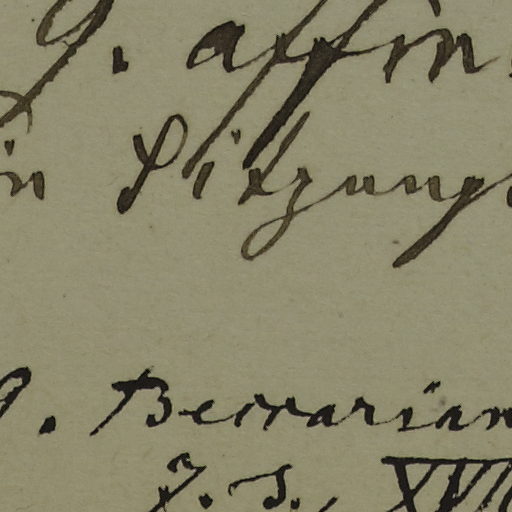 g. affin
in Sitzung
g. Beccarian
J. S., XVII